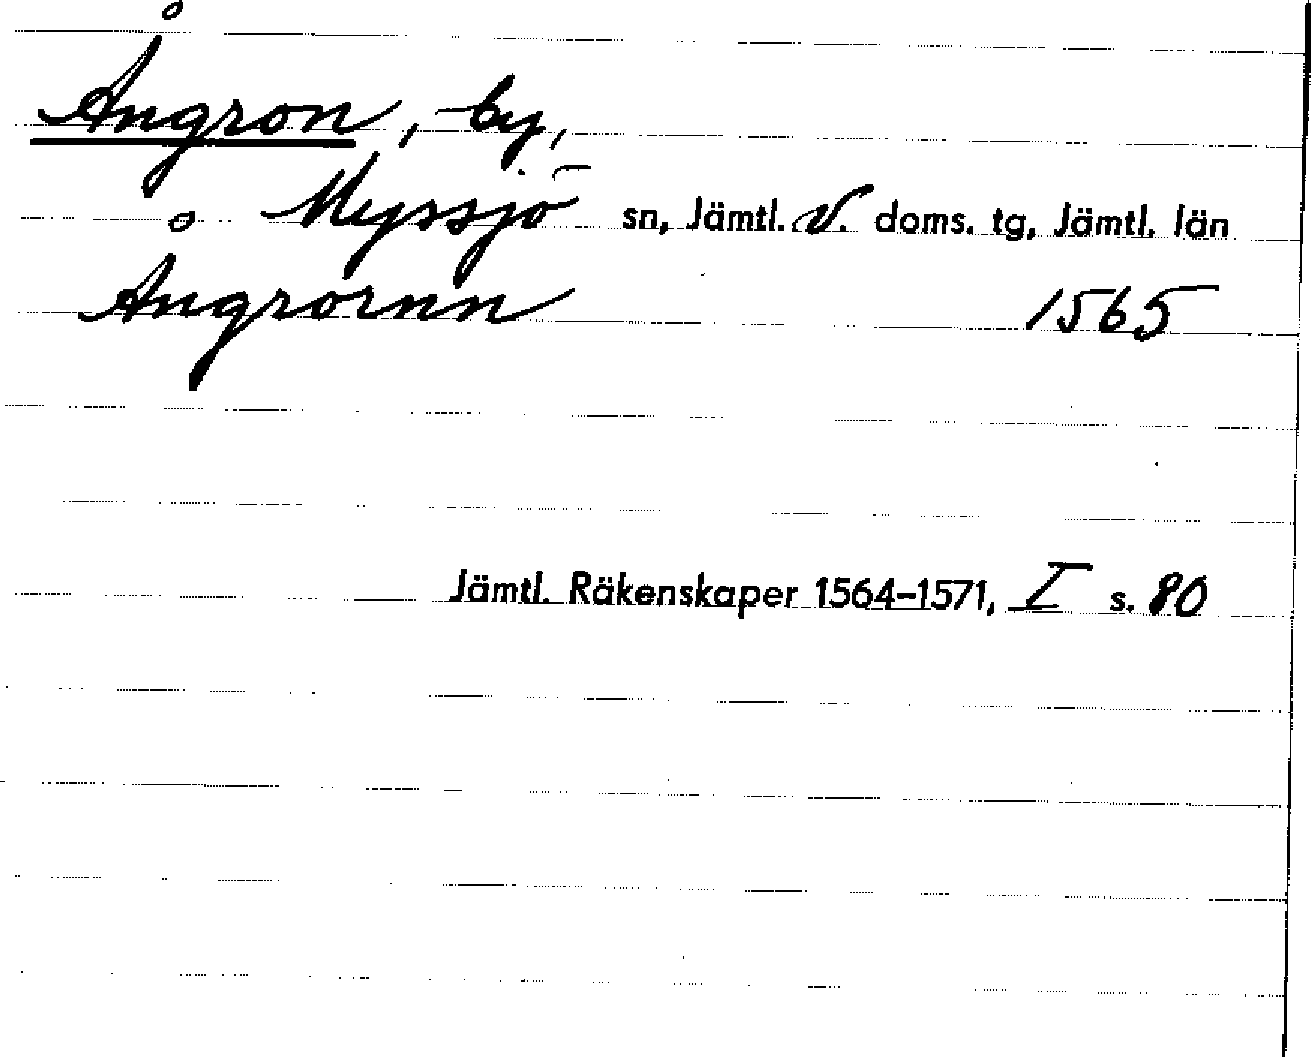 Ångron, by,
Myssjö sn, Jämtl. V. doms. tg, Jämtl. län
Ångrornn 1565
Jämtl. Räkenskaper 1564–1571, I s. 80